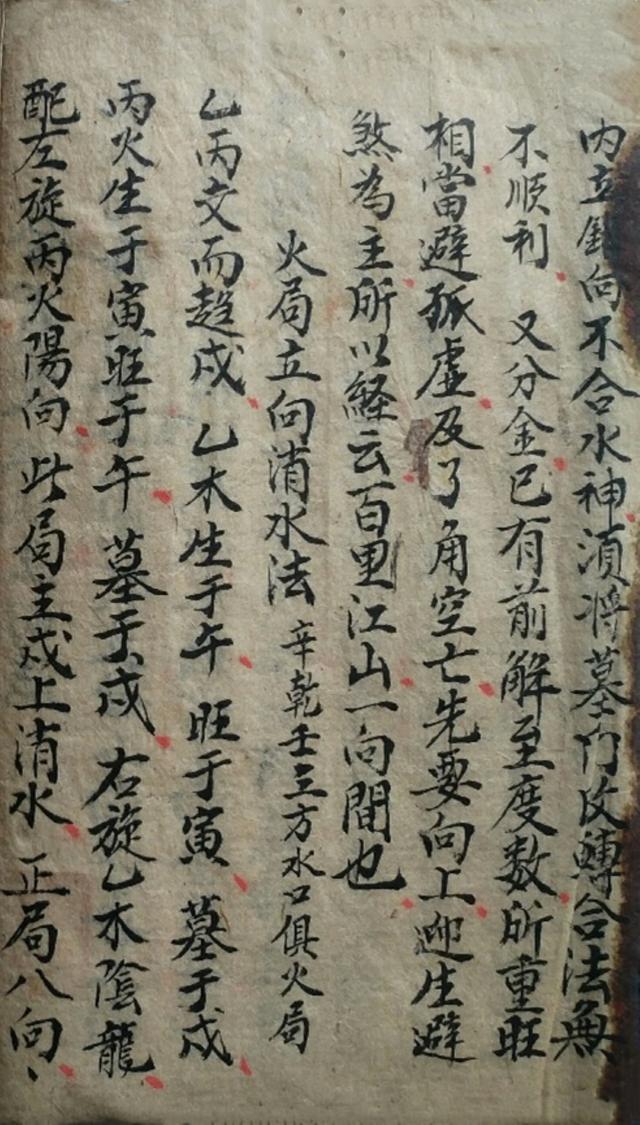 內立針向不合水神須將墓门改轉合法無
不順利 又分金已有前解至度数所重旺
相當避孤虛及了角空亡先要向上迎生避
煞為主所以経云百里江山一向間也
火局立向消水法 辛乾壬三方水口俱火局
乙丙交而趍戍 乙木生于午 旺于寅 墓于戍
丙火生于寅旺于午 墓于戍 右旋乙木陰龍
配左旋丙火陽向 此局主戍上消水 正局八向